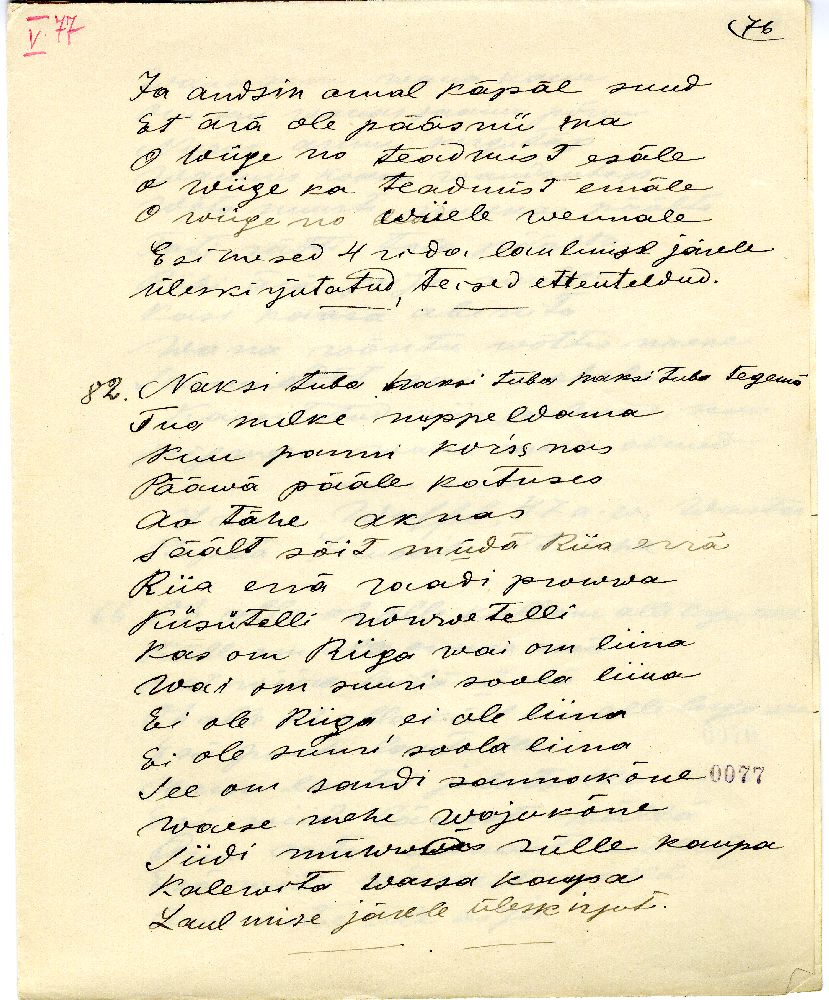 V 77
76
Ja andsin amal käpäl suud
Et ärä ole pääsnü ma
O wiige no teadmist esäle
O wiige ka teadmist emäle
O wiige no wiiele wennale
Esimesed 4 rida laulmise järele
üleskirjutatud, teised etteuteldud.
82. Naksi tuba naksi tuba naksi tuba tegemä
Tua nulke noppeldama
Kuu panni korsnas
Pääwä pääle katuses
Ao tähe aknas
Säält sõit müdä Riia errä
Riia errä raadi prowwa
Küsütelli nõwwetelli
Kas om Riiga wai om liina
Wai om suuri soola liina
Ei ole Riiga ei ole liina
Ei ole suuri soola liina
See om sandi sannakõne
0077
Waese mehe wajukõne
Siidi müwwäs sülle kaupa
Kalewita wassa kaupa
Laulmise järele üleskirjut.